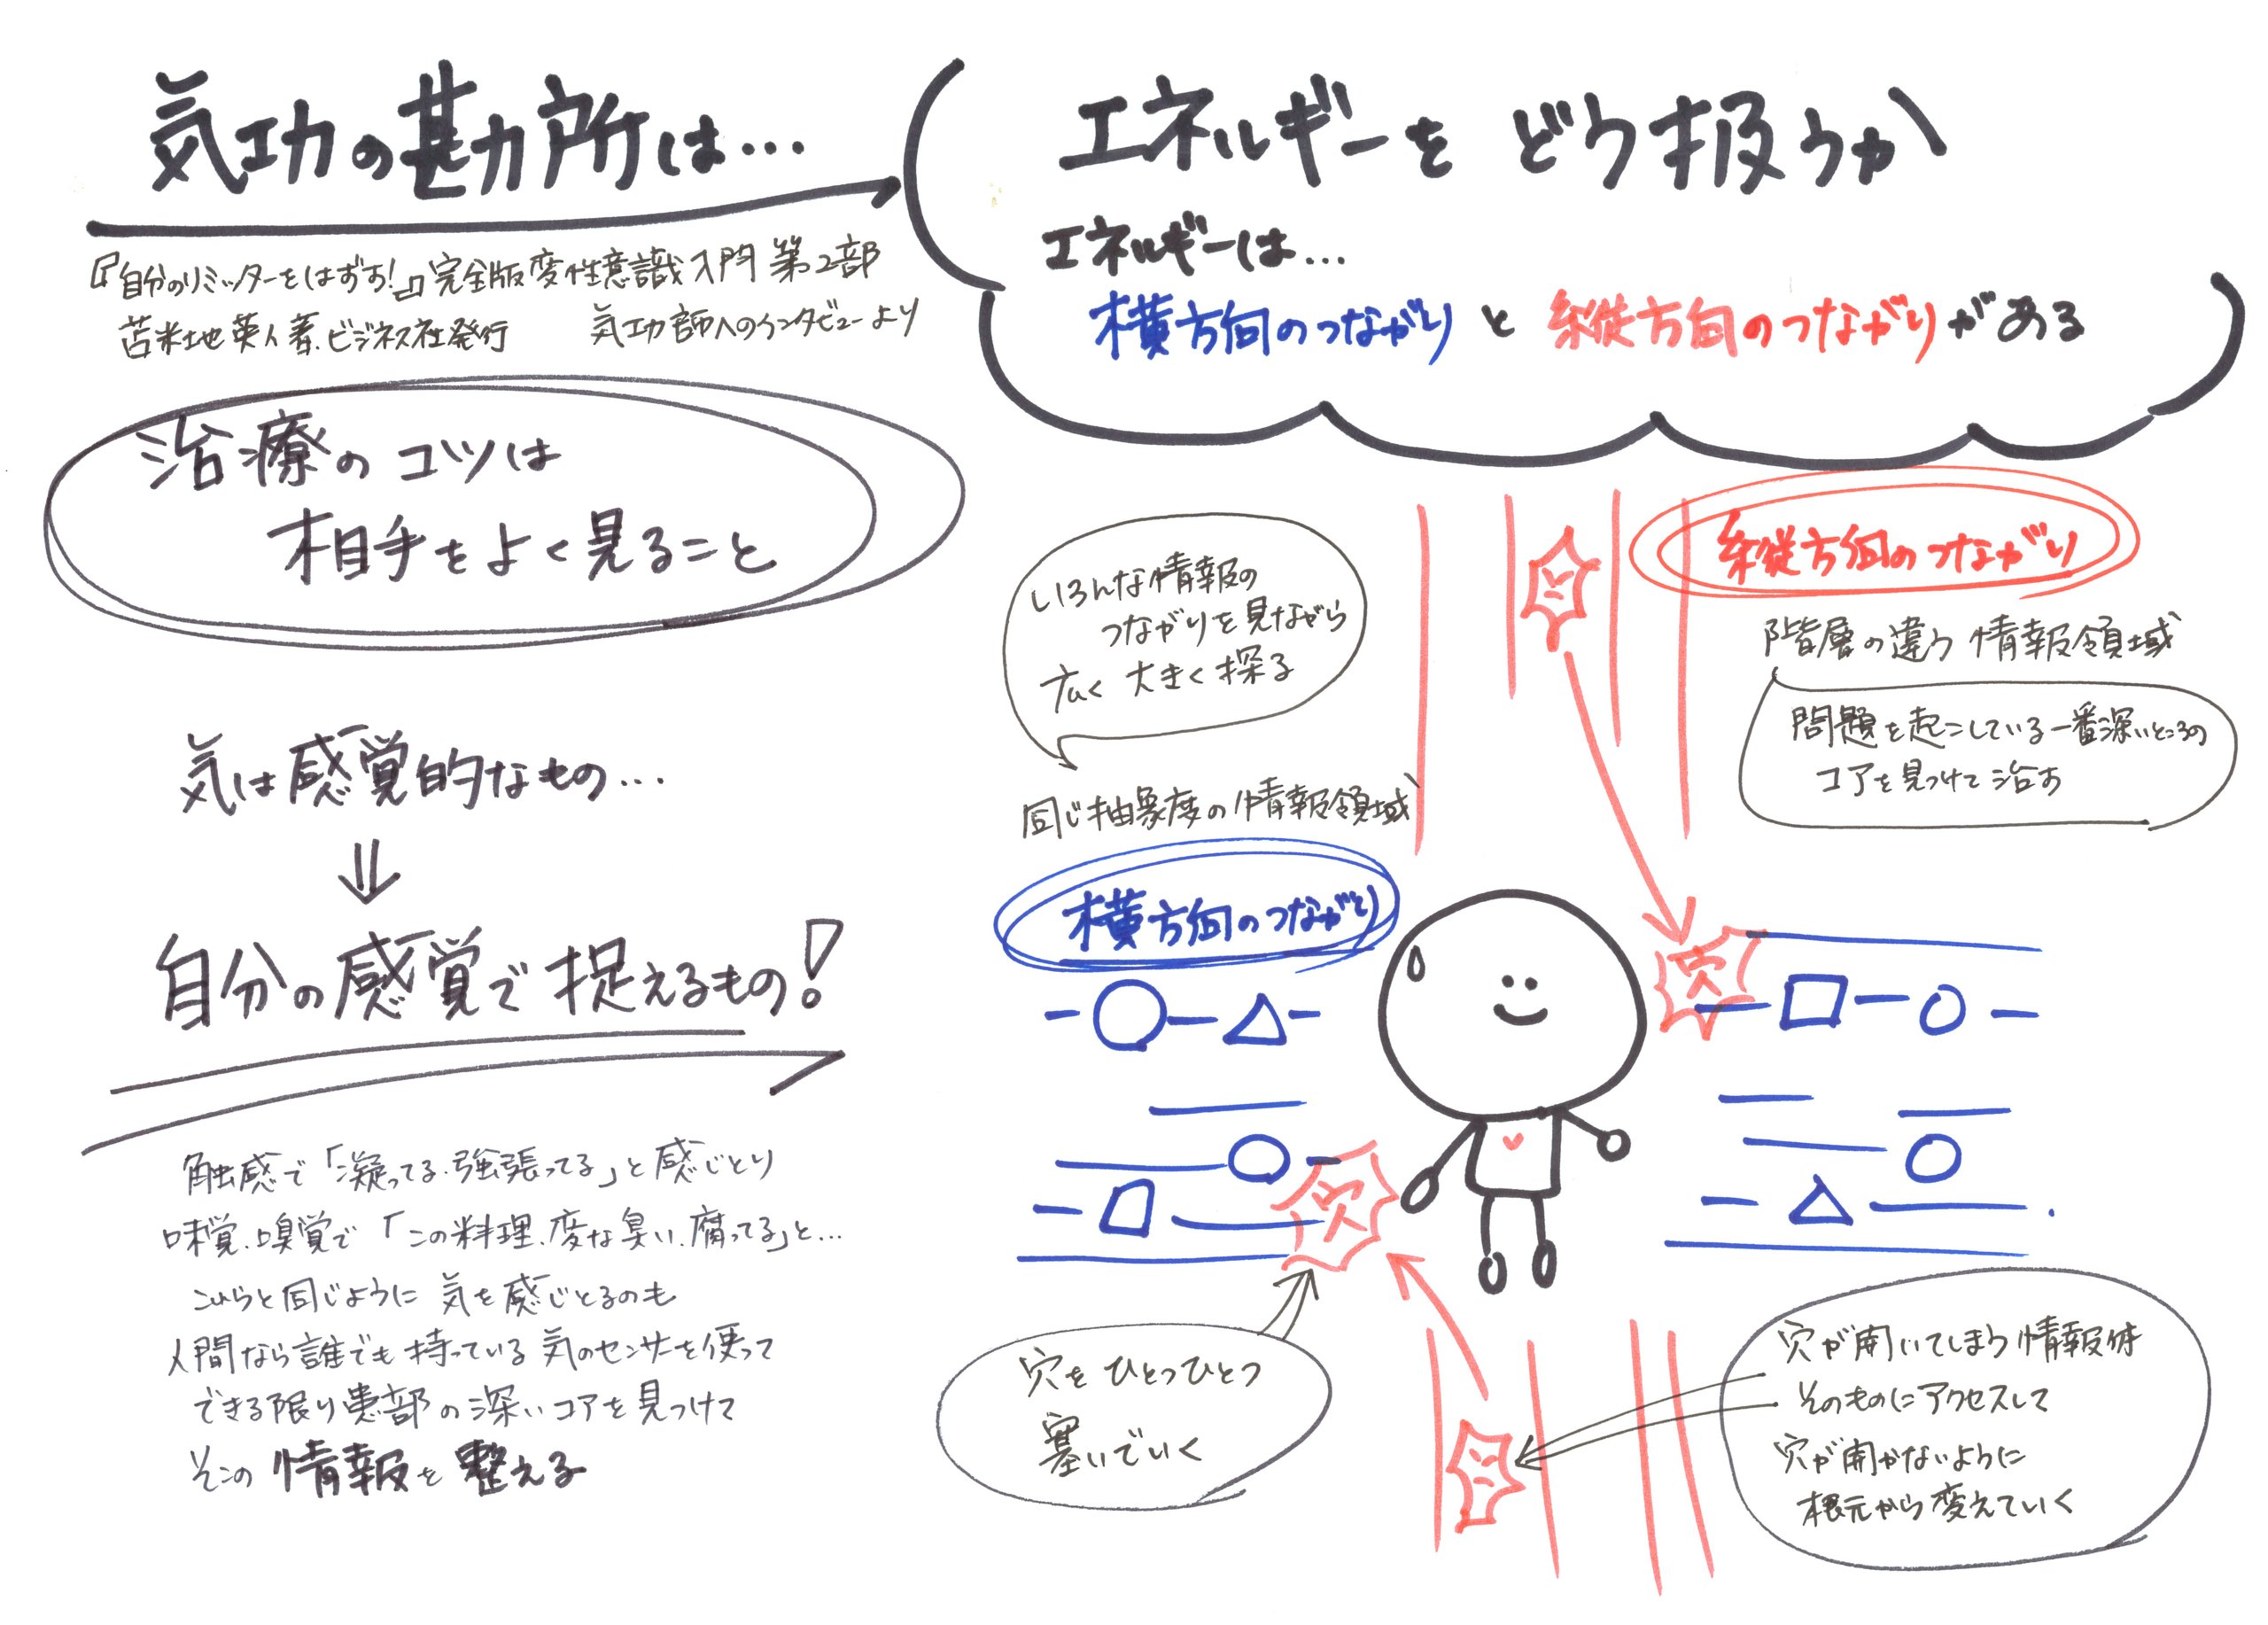 気功の勘所は…
『自分のリミッターをはずす!』完全版 変性意識入門 第2部
苫米地英人著.ビジネス社発行 気功師へのインタビューより
治療のコツは
相手をよく見ること
気は感覚的なもの…
⇓
自分の感覚で捉えるもの!
触感で「凝ってる.強張ってる」と感じとり
味覚.嗅覚で「この料理.変な臭い.腐ってる」と…
これらと同じように 気を感じとるのも
人間なら誰でも持っている 気のセンサーを使って
できる限り患部の深いコアを見つけて
そこの情報を整える
エネルギーを どう扱うか
エネルギーは…
横方向のつながり と 縦方向のつながりがある
いろんな情報の
つながりを見ながら
広く 大きく 探る
同じ抽象度の情報領域
横方向のつながり
縦方向のつながり
階層の違う 情報領域
問題を起こしている一番深いところの
コアを見つけて治す
穴
穴
穴をひとつひとつ
塞いでいく
穴が開いてしまう情報体
そのものにアクセスして
穴が開かないように
根元から変えていく